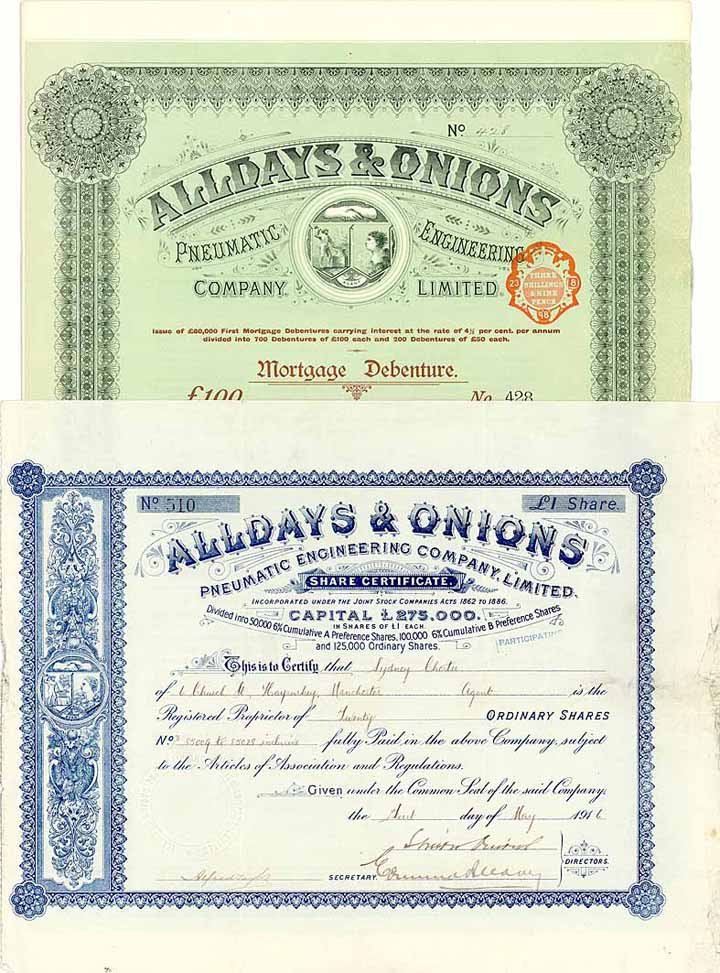 No 428
ALLDAYS & ONIONS
PNEUMATIC ENGINEERING
COMPANY LIMITED.
23 THREE SHILLINGS & NINE PENCE 8
98
Issue of £80,000 First Mortgage Debentures carrying interest at the rate of 4½ per cent. per annum
divided into 700 Debentures of £100 each and 200 Debentures of £50 each.
Mortgage Debenture.
£100 No. 428
No 510 £1 Share.
ALLDAYS & ONIONS
PNEUMATIC ENGINEERING COMPANY, LIMITED.
SHARE CERTIFICATE.
INCORPORATED UNDER THE JOINT STOCK COMPANIES ACTS 1862 TO 1886.
CAPITAL £275,000.
IN SHARES OF £1 EACH
Divided into 50,000 6% Cumulative A Preference Shares, 100,000 6% Cumulative B Preference Shares
and 125,000 Ordinary Shares.
PARTICIPATING
This is to Certify that Sydney
of Manchester Agent is the
Registered Proprietor of Twenty ORDINARY SHARES
Nos 55009 to 55028 inclusive fully Paid in the above Company, subject
to the Articles of Association and Regulations.
Given under the Common Seal of the said Company,
the day of May 1916
DIRECTORS.
SECRETARY.